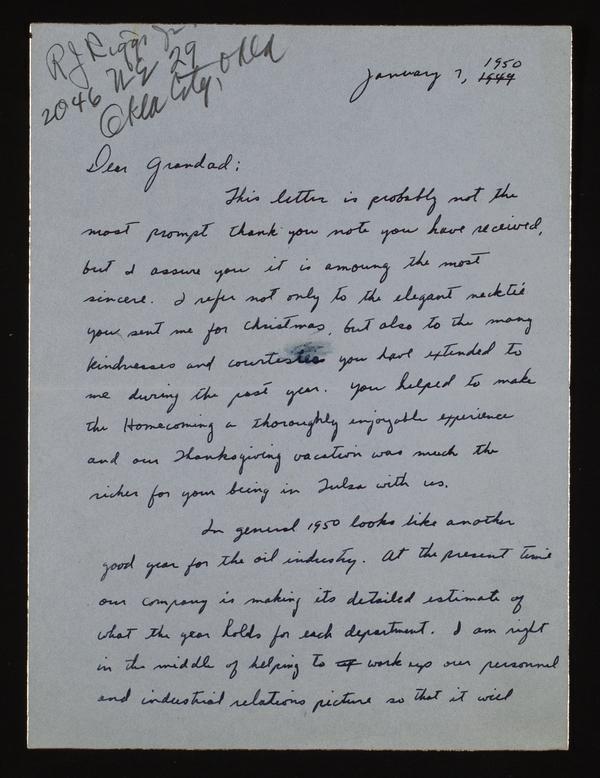 RJ Riggs Jr.
2046 NE 29
Okla City, Okla
1950
January 7, 1949
Dear Grandad;
This letter is probably not the
most prompt thank you note you have received,
but I assure you it is amoung the most
sincere. I refer not only to the elegant necktie
you sent me for Christmas, but also to the many
kindnesses and courtesies you have extended to
me during the past year. You helped to make
the Homecoming a thoroughly enjoyable experience
and our Thanksgiving vacation was much the
richer for your being in Tulsa with us.
In general 1950 looks like another
good year for the oil industry. At the present time
our company is making its detailed estimate of
what the year holds for each department. I am right
in the middle of helping to work up our personnel
and industrial relations picture so that it will